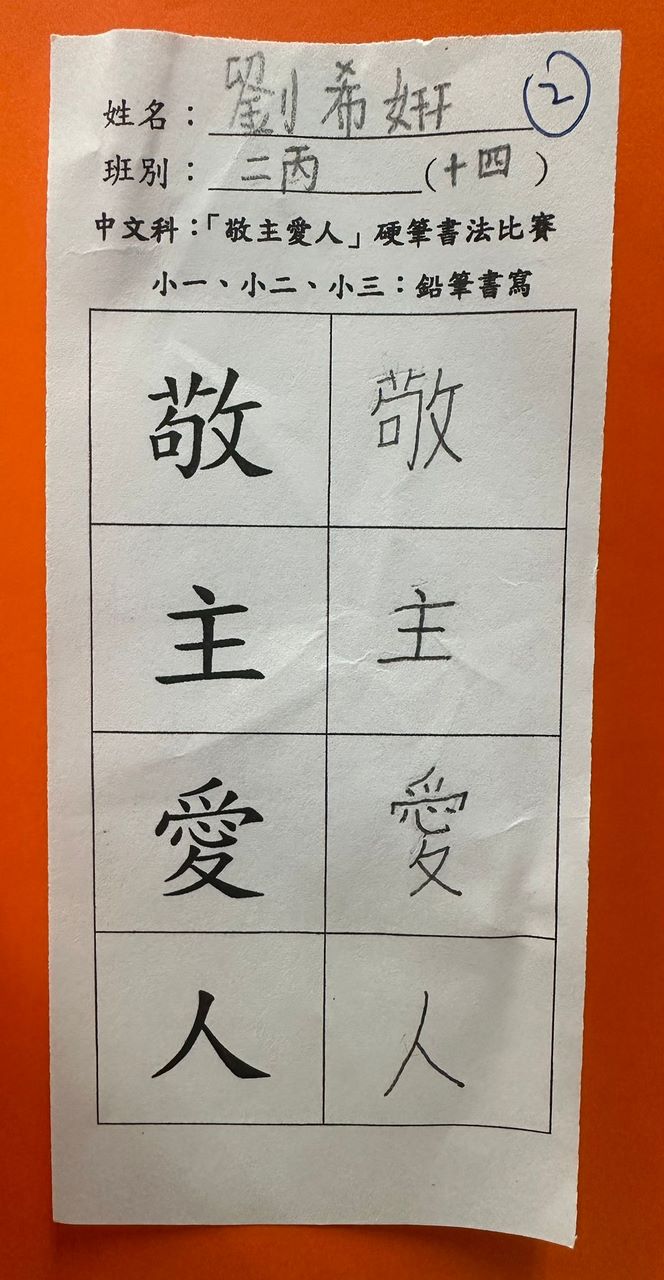 姓名：劉希妍 2
班別：二丙（十四）
中文科：「敬主愛人」硬筆書法比賽
小一、小二、小三：鉛筆書寫
敬 敬
主 主
愛 愛
人 人